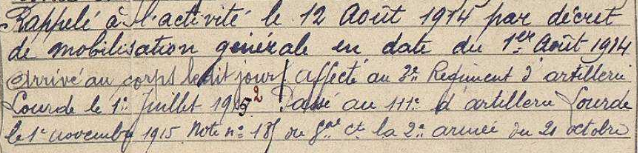 Rappelé à l'activité le 12 Août 1914 par décret
de mobilisation générale en date du 1er Août 1914
Arrivé au corps le dit jour, affecté au 3e Regiment d'artillerie
Lourde le 1er Juillet 1915 Passé au 111e d'artillerie Lourde
le 1er novembre 1915 Note n° du Gal Ct la 2e armée du 21 octobre